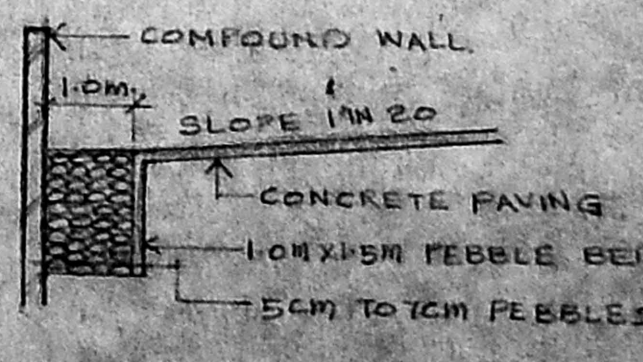 COMPOUND WALL.
1.0m.
SLOPE 1 IN 20
CONCRETE PAVING
1.0M X 1.5M PEBBLE
5CM TO 7CM PEBBLES